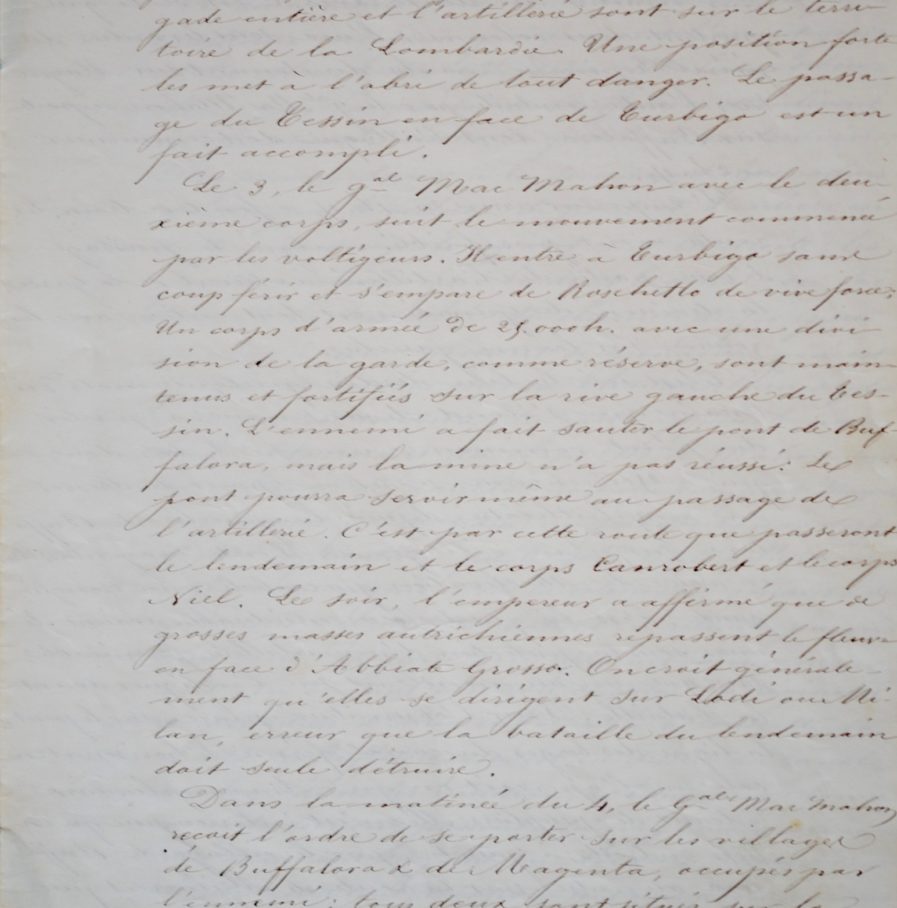 gade entière et l'artillerie sont sur le terri-
toire de la Lombardie. Une position forte
les met à l'abri de tout danger. Le passa-
ge du Tessin en face de Turbigo est un
fait accompli.
Le 3, le gal Mac Mahon avec le deu-
xième corps, suit le mouvement commencé
par les voltigeurs. Il entre à Turbigo sans
coup férir et s'empare de Roschetto de vive force;
Un corps d'armée de 25,000 h. avec une divi-
sion de la garde, comme réserve, sont main-
tenus et fortifiés sur la rive gauche du Tes-
sin. L'ennemi a fait sauter le pont de Buf-
falora, mais la mine n'a pas réussi: Le
pont pourra servir même au passage de
l'artillerie. C'est par cette route que passeront
le lendemain et le corps Canrobert et le corps
Niel. Le soir, l'empereur a affirmé que de
grosses masses autrichiennes repassent le fleuve
en face d'Abbiate Grosso. On croit générale-
ment qu'elles se dirigent sur Lodi ou Mi-
lan, erreur que la bataille du lendemain
doit seule détruire.
Dans la matinée du 4, le Gal Mac Mahon
reçoit l'ordre de se porter sur les villages
de Buffalora & de Magenta, occupés par
l'ennemi: tous deux sont situés sur la